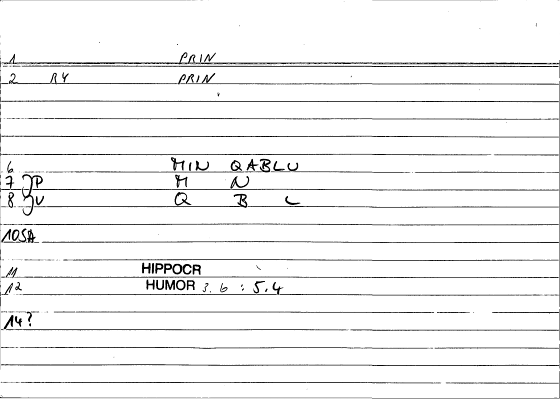 1 PRIN
2 RY PRIN
6 MIN QABLU
7 P M N
8 U Q B L
10SA
11 HIPPOCR
12 HUMOR 3.6 : 5.4
14?